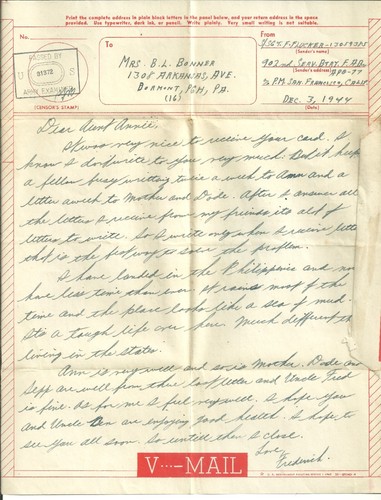 Print the complete address in plain block letters in the panel below, and your return address in the space
provided. Use typewriter, dark ink, or pencil. Write plainly. Very small writing is not suitable.
No.
To
From
PASSED BY
U S
ARMY EXAMINER
(CENSOR'S STAMP)
MRS. B. L. BONNER
1308 ARKANSAS, AVE.
DORMONT, PGH, PA.
(16)
(Sender's name)
902nd SERV. BTRY. F.A.BN.
(Sender's address)
APO-77
c/o P.M. SAN. FRANCISCO, CALIF
DEC. 3, 1944
(Date)
Dear Aunt Annie:
It was very nice to receive your card. I
know I don't write to you very much. But it keeps
a fellow busy writing twice a week to Ann and a
letter a week to Mother and Dode. After I answer all
the letters I receive from my friends its a lot of
letters to write. So I write only when I receive letters
that is the best way to solve the problem.
I have landed in the Philippines and now
have less time than ever. It rains most of the
time and the place looks like a sea of mud.
Its a tough life over here. Much different than
living in the states.
Ann is very well and so is Mother. Dode and
Sepp are well from their last letter and Uncle Fred
is fine. As for me I feel very well. I hope you
and Uncle Ben are enjoying good health. I hope to
see you all soon. So untill then I close.
Love,
Frederick.
V···—MAIL